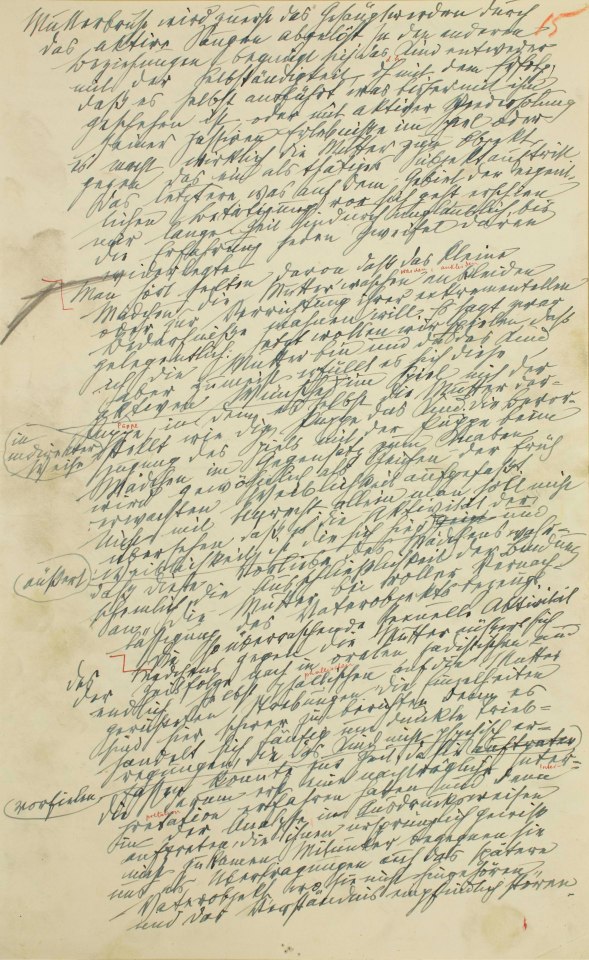 15
Mutterbrust wird zuerst das Gesäugtwerden durch
das aktive Saugen abgelöst. In den anderen
Beziehungen begnügt sich das Kind entweder
mit der Selbständigkeit, d. h. mit dem Erfolg,
daß es selbst ausführt was bisher mit ihm
geschehen ist, oder mit aktiver Wiederholung
seiner passiven Erlebnisse im Spiel oder
es macht wirklich die Mutter zum Objekt
gegen das es als thätiges Subjekt auftritt.
Das letztere, was auf dem Gebiet der eigent-
lichen Betätigung vor sich geht erschien
mir lange Zeit hindurch unglaublich, bis
die Erfahrung jeden Zweifel daran
widerlegte.
Man hört selten davon daß das kleine
waschen ankleiden
Mädchen die Mutter waschen ankleiden
oder zur Verrichtung ihrer exkrementellen
Bedürfnisse mahnen will. Es sagt zwar
gelegentlich: jetzt wollen wir spielen, daß
ich die Mutter bin und du das Kind
aber zumeist erfüllt es sich diese
aktiven Wünsche im Spiel mit der
Puppe
in
indirekter
Weise
Puppe, in dem es selbst die Mutter dar-
stellt wie die Puppe das Kind. Die Bevor-
zugung des Spiels mit der Puppe beim
Mädchen im Gegensatz zum Knaben
wird gewöhnlich als Zeichen der früh
erwachten Weiblichkeit aufgefaßt.
Nicht mit Unrecht, allein man soll nicht
übersehen, daß es die Aktivität der
äußert
Weiblichkeit ist, die sich hier und
daß diese Vorliebe des Mädchens wahr-
scheinlich die Ausschließlichkeit der Bindung
an die Mutter bei voller Vernach-
lässigung des Vaterobjekts bezeugt.
Die so überraschende sexuelle Aktivität
des Mädchens gegen die Mutter äußert sich
der Zeitfolge nach in oralen, sadistischen und
endlich selbst phallischen auf die Mutter
gerichteten Strebungen. Die Einzelheiten
sind hier schwer zu berichten, denn es
handelt sich häufig um dunkle Trieb-
regungen, die das Kind nicht psychisch er-
fassen konnte zur Zeit da sie auftraten
vorfielen
die darum erst eine nachträgliche Inter-
pretation erfahren haben und dann
in der Analyse in Ausdrucksweisen
auftreten, die ihnen ursprünglich gewiß
nicht zukamen. Mitunter begegnen sie
uns als Übertragungen auf das spätere
Vaterobjekt, wo sie nicht hingehören
und das Verständnis empfindlich stören.